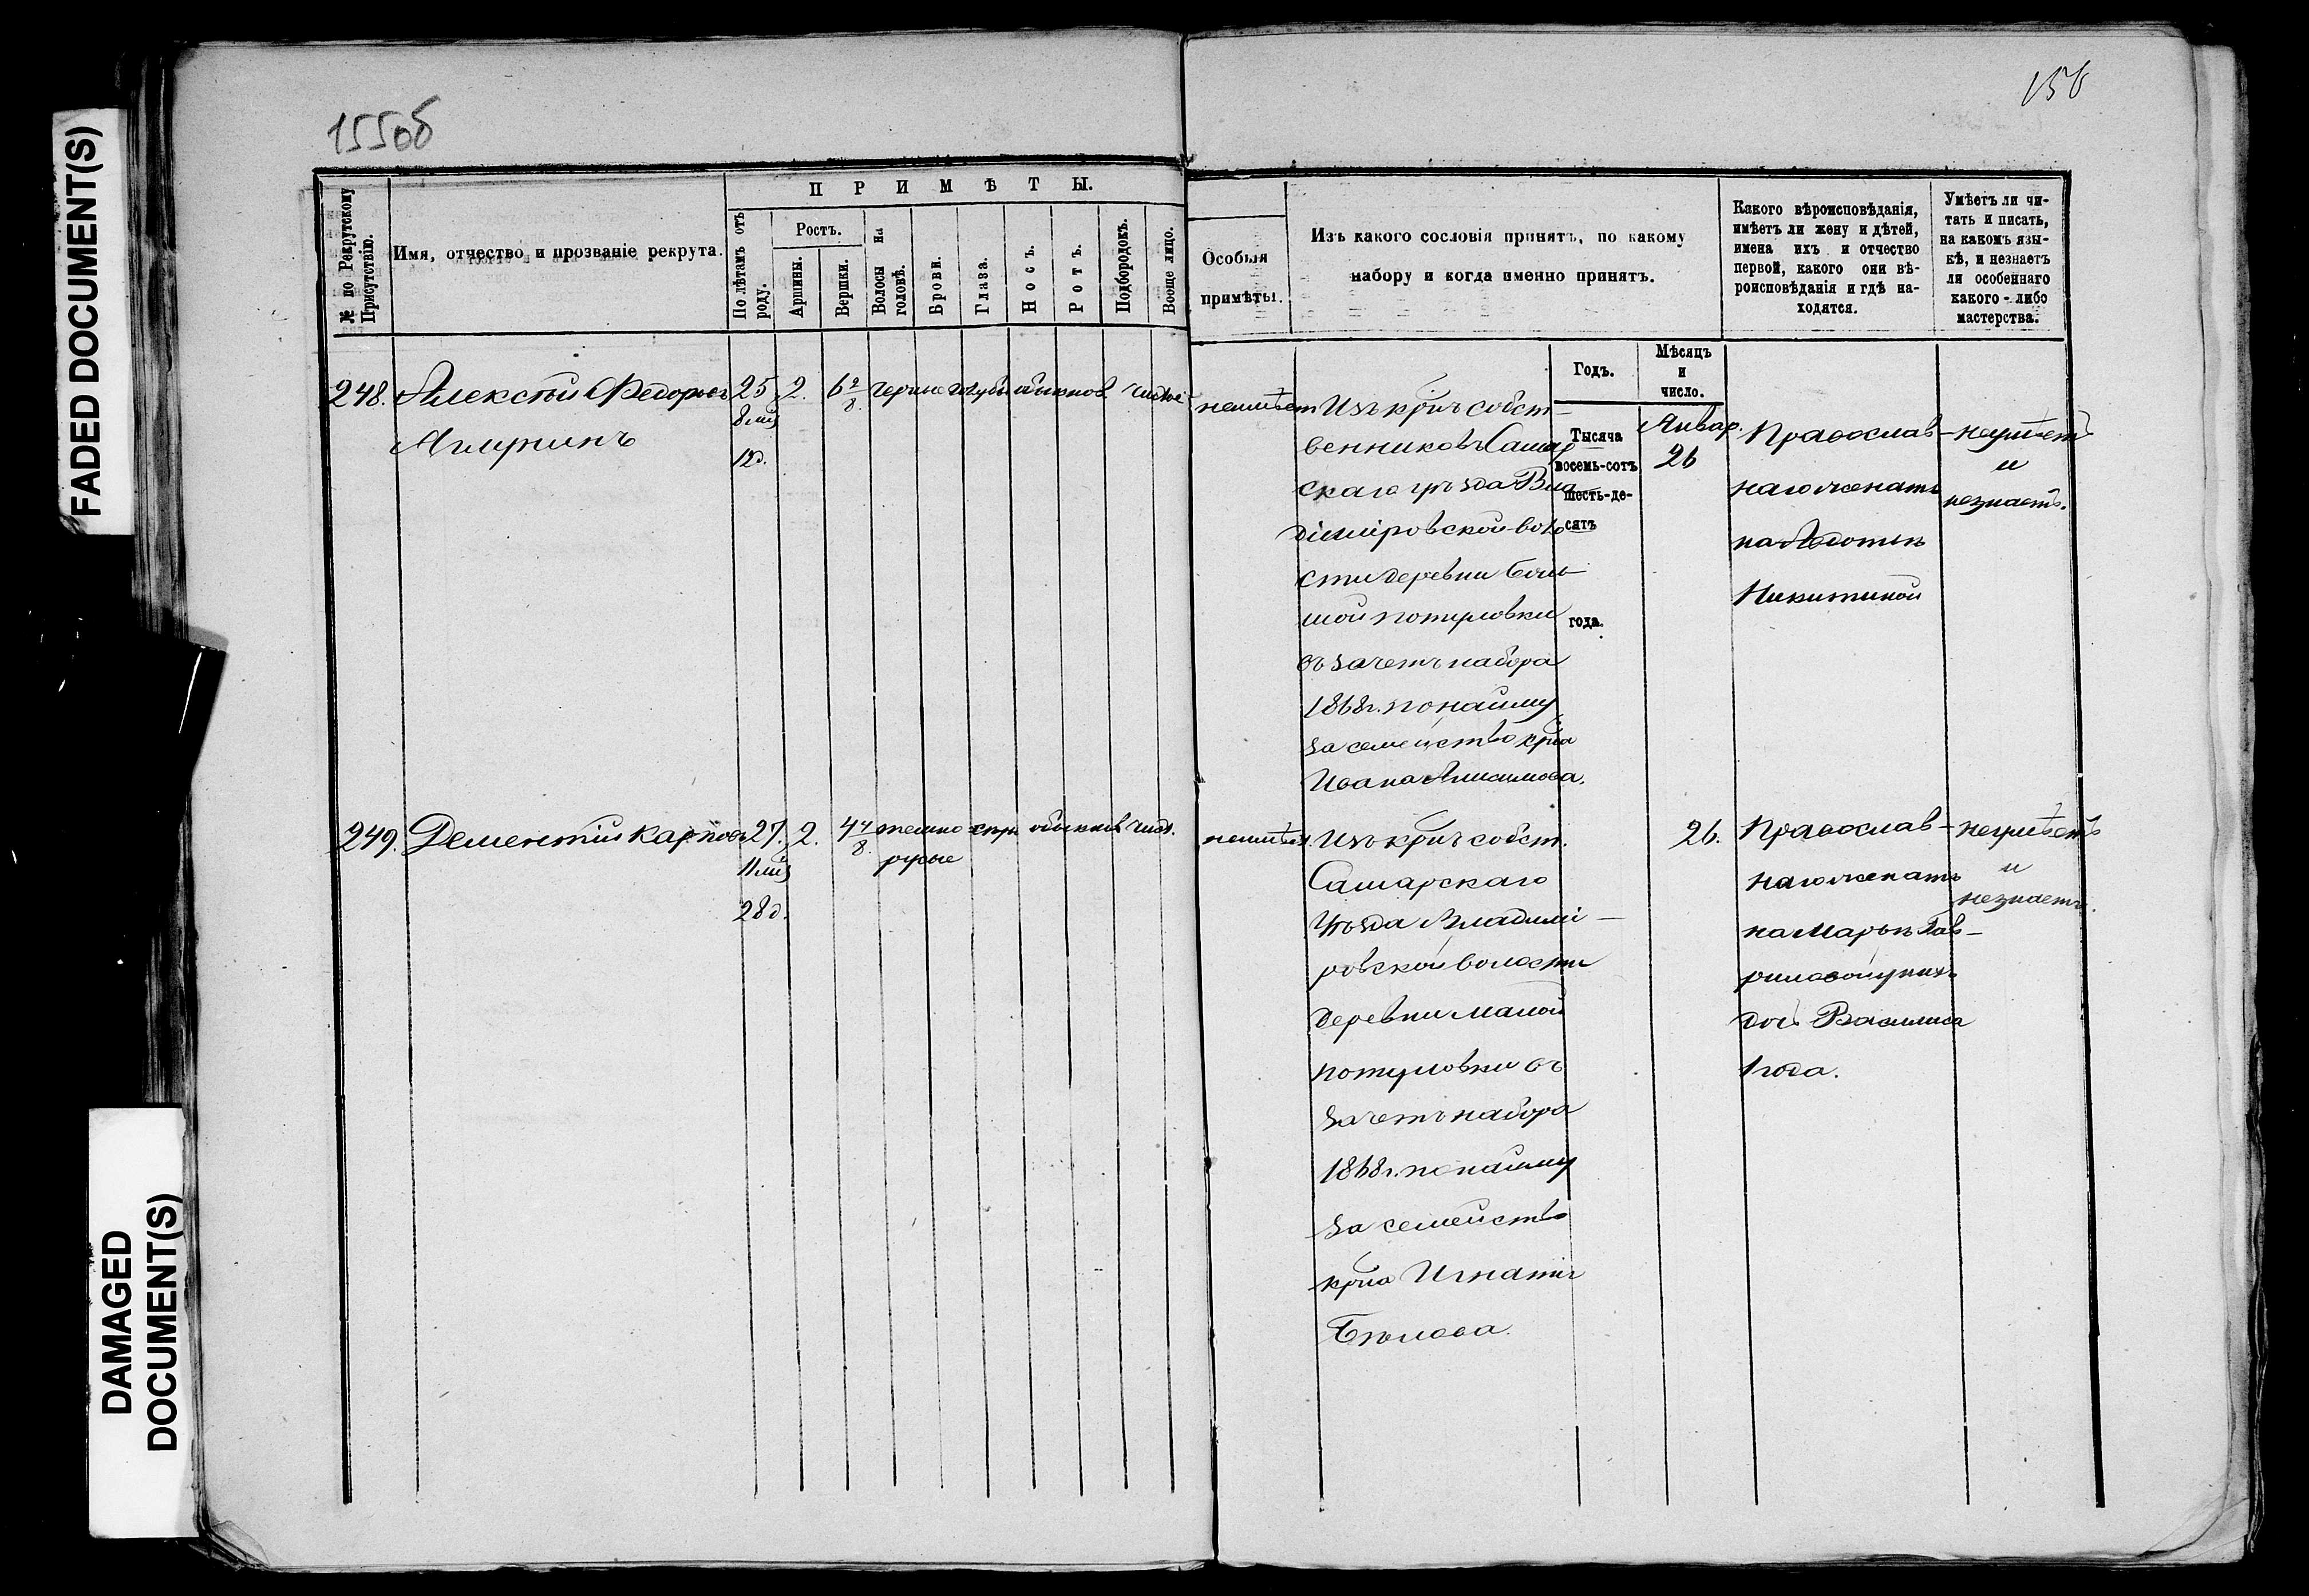 FADED DOCUMENT(S)
DAMAGED
DOCUMENT(S)
155об
156
№ по Рекрутскому
Присутствію.
Имя, отчество и прозваніе рекрута.
ПРИМѢТЫ.
По лѣтамъ отъ
роду.
Ростъ.
Аршины.
Вершки.
Волосы на
головѣ.
Брови.
Глаза.
Носъ.
Ротъ.
Подбородокъ.
Вооще лицо.
Особыя
примѣты.
Изъ какого сословія принятъ, по какому
набору и когда именно принятъ.
Какого вѣроисповѣданія,
имѣетъ ли жену и дѣтей,
имена ихъ и отчество
первой, какого они вѣ-
роисповѣданія и гдѣ на-
ходятся.
Умѣетъ ли чи-
тать и писать,
на какомъ язы-
кѣ, и незнаетъ
ли особеннаго
какого-либо
мастерства.
Годъ.
Мѣсяцъ
и
число.
248. Алексѣй Федоровъ 25 2. 6 2/8 черные голубы обыкнов чистое
8 мц
12 д.
неимѣет
Изъ крнъ собст-
венниковъ Самар
скаго уѣзда Вла
диміровской воло
сти деревни Боль
шой
въ зачетъ набора
1868 г. по найму
за семейство крна
Ивана Анисимова.
Тысяча
восемь-сотъ
шесть-де-
сятъ
года.
Январ.
26
Православ-
наго женатъ
на Федотьѣ
Никитиной
неумѣетъ
и
незнаетъ.
249. Дементій Карповъ 27. 2. 4 4/8 темно сѣры обыкнов чист.
русые
11 мц
28 д.
неимѣет.
Изъ крнъ собст.
Самарскаго
Уѣзда Владимі-
ровской волости
деревни малой
въ
зачетъ набора
1868 г. по найму
за семейство
крна Игнатія
Бѣлова.
26.
Православ-
наго женатъ
на Марьѣ Гав-
риловой у нихъ
дочь Василиса
1 года.
неумѣетъ
и
незнаетъ.